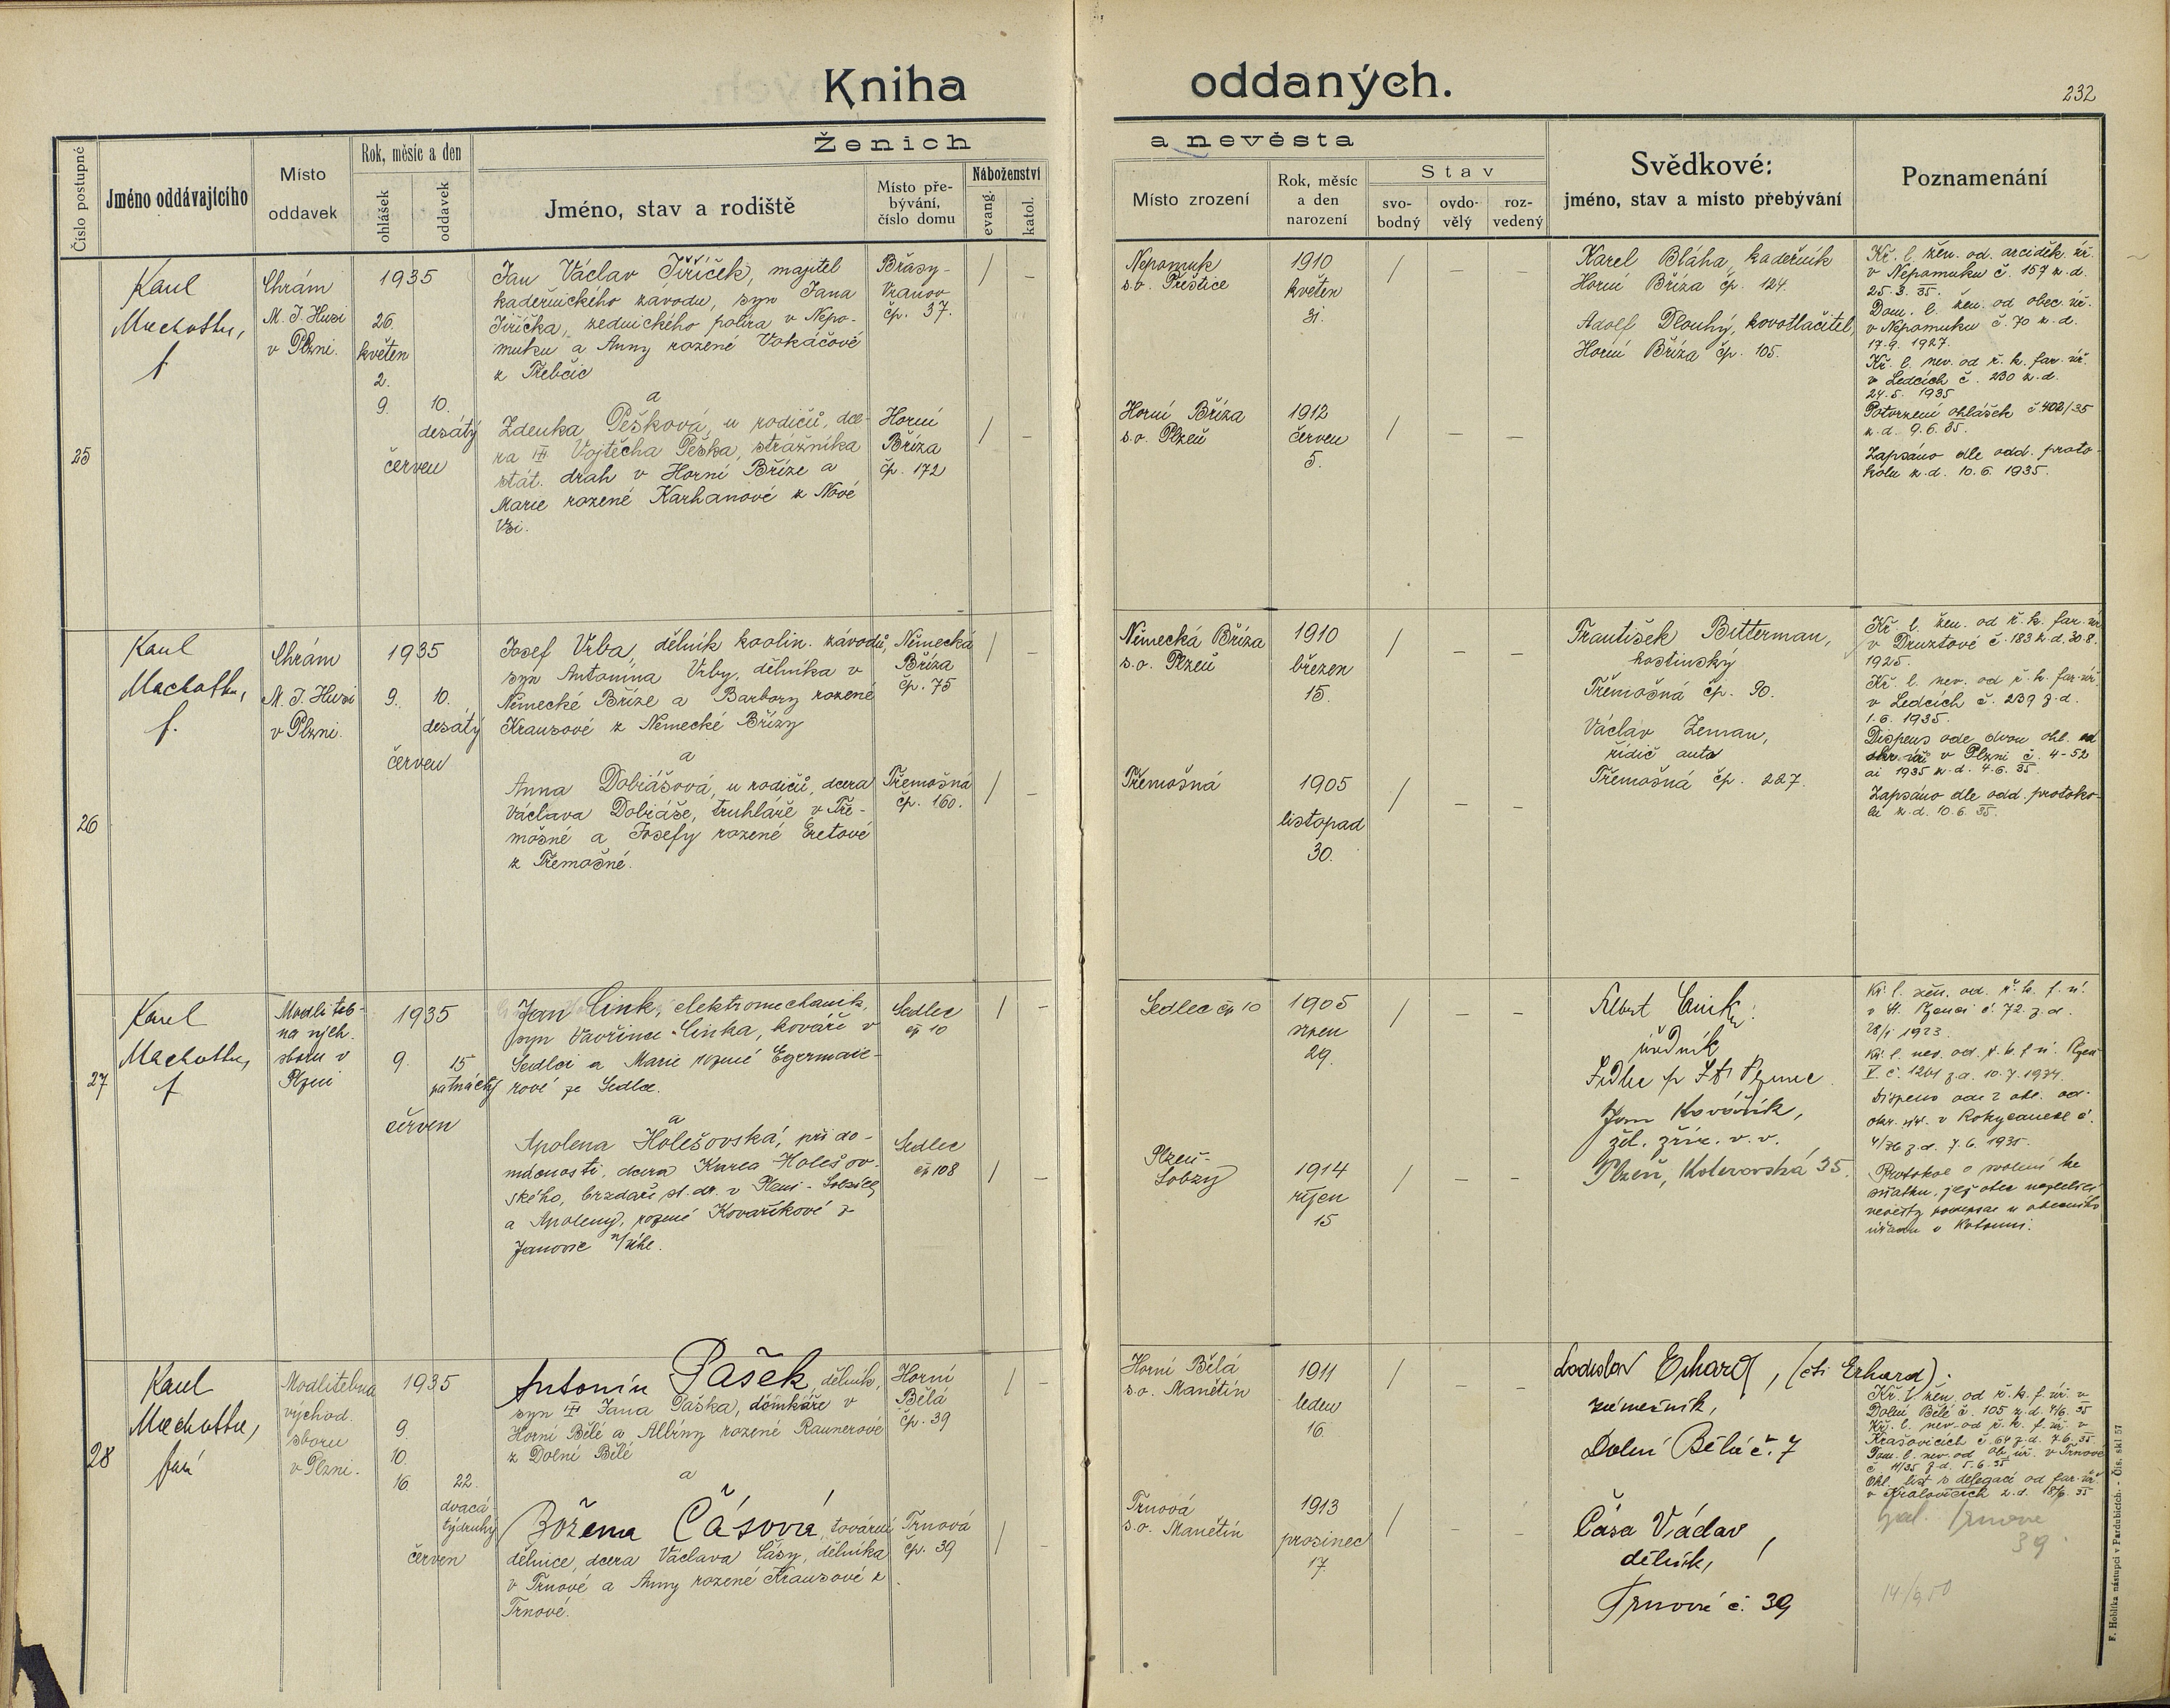 Kniha oddaných.
232
Ženich a nevěsta
Číslo postupné
Jméno oddávajícího
Místo
oddavek
Rok, měsíc a den
ohlášek
oddavek
Jméno, stav a rodiště
Místo pře-
bývání,
číslo domu
Náboženství
evang.
katol.
Místo zrození
Rok, měsíc
a den
narození
Stav
svo-
bodný
ovdo-
vělý
roz-
vedený
Svědkové:
jméno, stav a místo přebývání
Poznamenání
25
Karel
Machotka,
f
Chrám
M. J. Husi
v Plzni.
1935
26.
květen
2.
9. 10.
desátý
červen
Jan Václav Jiříček, majitel
kadeřnického závodu, syn Jana
Jiříčka, zednického políra v Nepo-
muku a Anny rozené Vokáčové
z Třebčic
a
Zdenka Pešková, u rodičů, dce-
ra † Vojtěcha Peška, strážníka
stát. drah v Horní Bříze a
Marie rozené Karhanové z Nové
Vsi.
Břasy-
Vranov
čp. 37.
/ –
Horní
Bříza
čp. 172
/ –
Nepomuk
s.o. Přeštice
1910
květen
31.
/ – –
Horní Bříza
s.o. Plzeň
1912
červen
5.
/ – –
Karel Bláha, kadeřník
Horní Bříza čp. 124.
Adolf Dlouhý, kovotlačitel,
Horní Bříza čp. 105.
Kř. l. žen. od. arciděk. úř.
v Nepomuku č. 157 z. d.
25. 3. 35.
Dom. l. žen. od obec. úř.
v Nepomuku č. 70 z. d.
17. 9. 1927.
Kř. l. nev. od ř. k. far. úř.
v Ledcích č. 230 z. d.
24. 5. 1935
Potvrzení ohlášek č. 402/35
z. d. 9. 6. 35.
Zapsáno dle odd. proto-
kolu z. d. 10. 6. 1935.
26
Karel
Machotka,
f.
Chrám
M. J. Husi
v Plzni.
1935
9. 10.
desátý
červen
Josef Vrba, dělník kaolin. závodů,
syn Antonína Vrby, dělníka v
Německé Bříze a Barbory rozené
Krausové z Německé Břízy
a
Anna Dobiášová, u rodičů, dcera
Václava Dobiáše, truhláře v Tře-
mošné a Josefy rozené Eretové
z Třemošné.
Německá
Bříza
čp. 75
/ –
Třemošná
čp. 160.
/ –
Německá Bříza
s.o. Plzeň
1910
březen
15.
/ – –
Třemošná
1905
listopad
30.
/ – –
František Bitterman,
hostinský
Třemošná čp. 90.
Václav Zeman,
řidič auta
Třemošná čp. 227.
Kř. l. žen. od ř. k. far. úř.
v Druztové č. 183 z. d. 30. 8.
1925.
Kř. l. nev. od ř. k. far. úř.
v Ledcích č. 239 z. d.
1. 6. 1935.
Dispens ode dvou ohl. od
okr. úř. v Plzni č. 4-52
ai 1935 z. d. 4. 6. 35.
Zapsáno dle odd. protoko-
lu z. d. 10. 6. 35.
27
Karel
Machotka,
f
Modliteb-
na vých.
sboru v
Plzni
1935
9. 15
patnáctý
červen
Jan Cink, elektromechanik,
syn Vavřince Cinka, kováře v
Sedlci a Marie rozené Egermaie-
rové ze Sedlce.
a
Apolena Holešovská, při do-
mácnosti, dcera Karla Holešov-
ského, brzdaře st. dr. v Plzni-Lobzích
a Apoleny, rozené Kovaříkové z
Janovic n/Úhl.
Sedlec
čp 10
/ –
Sedlec
čp 108
/ –
Sedlec čp 10
1905
srpen
29.
/ – –
Plzeň-
Lobzy
1914
říjen
15
/ – –
Albert Cink,
úředník
Sedlec p. St. Plzenec
Jan Kovářík,
žel. zříz. v. v.
Plzeň, Koterovská 35.
Kř. l. žen. od. ř. k. f. ú.
v St. Plzenci č. 72. z. d.
28/1 1923.
Kř. l. nev. od. ř. k. f. ú. Plzeň
V. č. 1201 z. d. 10. 7. 1934.
Dispens ode 2 ohl. od.
okr. úř. v Rokycanech č.
4/36 z. d. 7. 6. 1935.
Protokol o svolení ke
sňatku, jej otec nezletilé
nevěsty podepsal u obecního
úřadu v
28
Karel
Machotka,
farář
Modlitebna
východ.
sboru
v Plzni.
1935
9.
10.
16. 22.
dvacá-
týdruhý
červen
Antonín Pašek, dělník,
syn † Jana Paška, domkáře v
Horní Bělé a Albíny rozené Raunerové
z Dolní Bělé
a
Božena Čásová, tovární
dělnice, dcera Václava Čásy, dělníka
v Trnové a Anny rozené Krausové z
Trnové.
Horní
Bělá
čp. 39
/ –
Trnová
čp. 39
/ –
Horní Bělá
s.o. Manětín
1911
leden
16.
/ – –
Trnová
s.o. Manětín
1913
prosinec
17.
/ – –
Ladislav Erhard, (čti Erhard).
řezník,
Dolní Bělá č. 7
Čása Václav,
dělník,
Trnová č. 39
Kř. l. žen. od ř. k. f. úř. v
Dolní Bělé č. 105 z. d. 4/6. 35
Kř. l. nev. od ř. k. f. úř. v
Krašovicích č. 64 z. d. 7. 6. 35.
Dom. l. nev. od ob. úř. v Trnové
č. 11/35 z. d. 5. 6. 35
Ohl. list s delegací od far. úř.
v Kralovicích z. d. 18/6. 35
Trnova
39
14/9 50
F. Hoblíka nástupci v Pardubicích. - Čís. skl 57